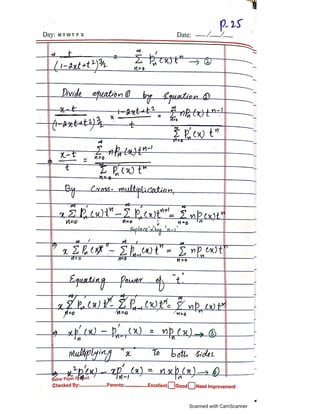 P-25
Day: M T W T F S Date: __/__/__
⇒ t/(1-2xt+t²)^{3/2} = Σ_{n=0}^{∞} P'_n(x)t^n → ②
Divide equation ① by equation ②
x-t/(1-2xt+t²)^{3/2} × (1-2xt+t²)^{3/2}/t = Σ_{n=0}^{∞} nP_n(x)t^{n-1} / Σ_{n=0}^{∞} P'_n(x)t^n
⇒ x-t/t = Σ_{n=0}^{∞} nP_n(x)t^{n-1} / Σ_{n=0}^{∞} P'_n(x)t^n
By Cross-multiplication,
x Σ_{n=0}^{∞} P'_n(x)t^n - Σ_{n=0}^{∞} P'_n(x)t^{n+1} = Σ_{n=0}^{∞} nP_n(x)t^n
Replace 'n' by 'n-1'
⇒ x Σ_{n=0}^{∞} P'_n(x)t^n - Σ_{n=0}^{∞} P'_{n-1}(x)t^n = Σ_{n=0}^{∞} nP_n(x)t^n
Equating Power of 't'
x Σ_{n=0}^{∞} P'_n(x)t^n - Σ_{n=0}^{∞} P'_{n-1}(x)t^n = Σ_{n=0}^{∞} nP_n(x)t^n
⇒ xP'_n(x) - P'_{n-1}(x) = nP_n(x) →
multiplying "x" To both sides
⇒ x²P'_n(x) - xP'_{n-1}(x) = nxP_n(x) →
Checked By: Parents: Excellent Good Need Improvement
Scanned with CamScanner